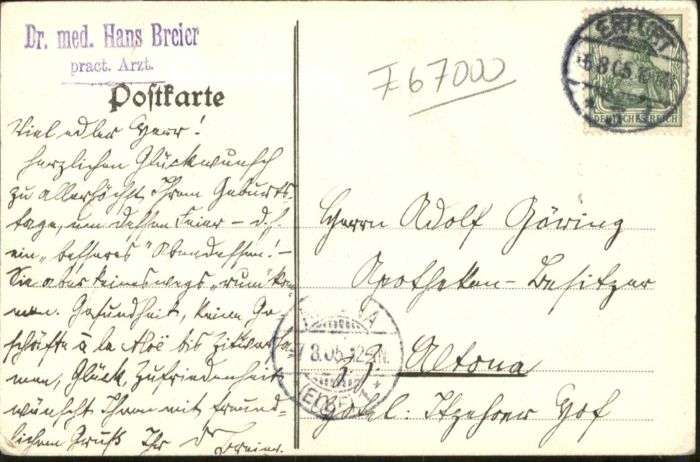 Dr. med. Hans Breier
pract. Arzt.
Postkarte
Viel edler Herr!
herzlichen Glückwunsch
zu allerhöchst Ihrem Geburts-
tage, um dessen Feier – d. h.
ein „besseres" Abendessen! –
Sie aber keineswegs
Gesundheit, keine Ge-
schäfte à la Aloë bis Zitwersa-
men, Glück, Zufriedenheit
wünscht Ihnen mit freund-
lichem Gruß Ihr Dr
Breier.
767000
ERFURT
5.8.05
DEUTSCHES REICH
Herrn Adolf Göring
Apotheken-Besitzer
Altona
Hotel: Itzehoer Hof
ALTONA
8.05
(ELBE) 1